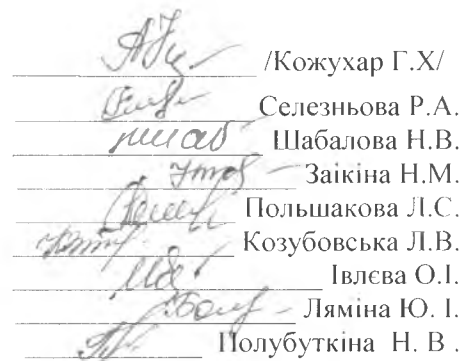 /Кожухар Г.Х/
Селезньова Р.А.
Шабалова Н.В.
Заікіна Н.М.
Польшакова Л.С.
Козубовська Л.В.
Івлєва О.І.
Ляміна Ю. І.
Полубуткіна Н. В .